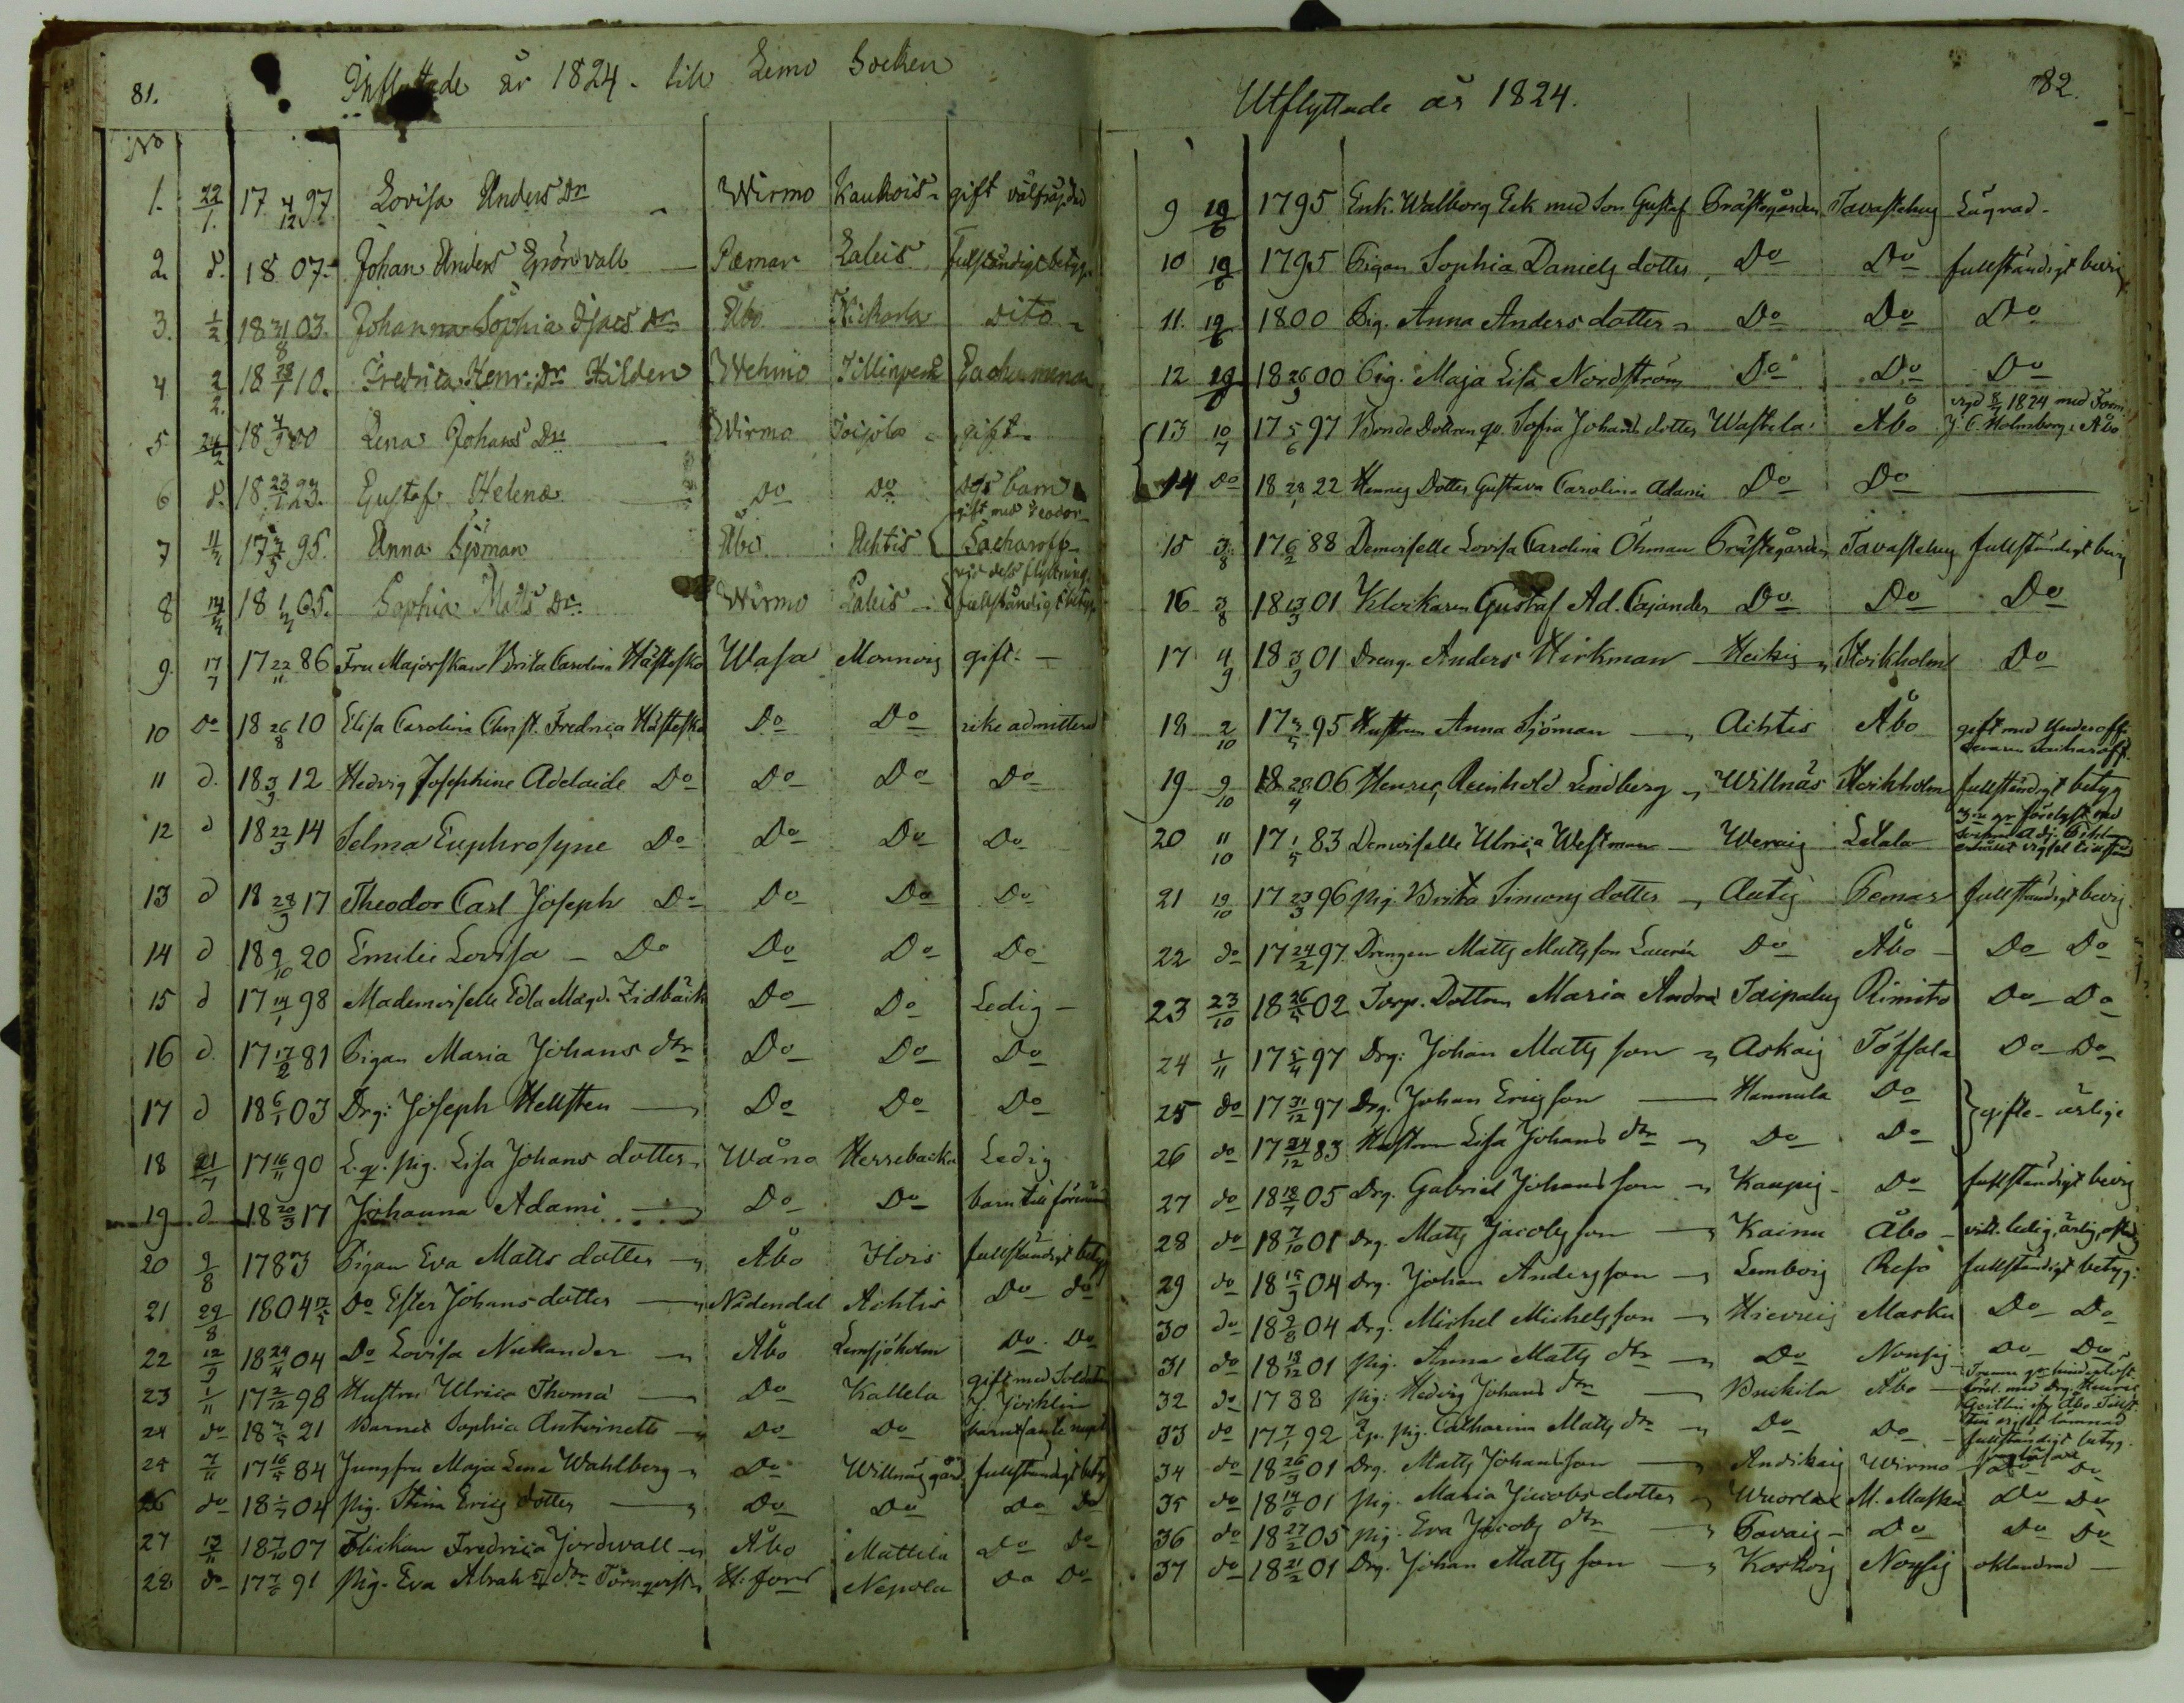 81.
Inflyttade år 1824. till Lemo Socken
No
1. 22/1. 17 4/12 97. Lovisa Anders Dr Wirmo Kaukois gift välfräjdad
2. d. 18 07. Johan Anders Grönvall Pemar Laleis fullständigt betyg.
3. 1/2 18 31/8 03. Johanna Sophia Isacs Dr Åbo Nickarla dito
4 2/2. 18 23/1 10. Fredrica Henr: Dr Hilden Wehmo
5 24/2 18 4/1 00 Lena Johans Dr Wirmo Toijola gift
6 d. 18 23/1 23. Gustaf Helena Do Do Ds barn
7 11/4 17 4/5 95. Anna Sjöman Åbo Achtis gift med Teodor Sacharoff
8 14/4 18 1/4 05. Sophia Matts Dr. Wirmo Laleis vid dess flyttning fullständigt betyg.
9. 17/7 17 22/11 86 Fru Majorskan Brita Carolina Hästesko Wasa Monnois gift.
10 Do 18 26/8 10 Elisa Carolina Christ. Fredrica Hästesko Do Do icke admitterad
11 d. 18 3/9 12 Hedvig Josephine Adelaide Do Do Do Do
12 d 18 22/3 14 Selma Euphrosyne Do Do Do Do
13 d 18 28/9 17 Theodor Carl Joseph Do Do Do Do
14 d 18 9/10 20 Emilie Lovisa Do Do Do Do
15 d 17 14/1 98 Mademoiselle Edla Magd. Lidbäck Do Do Ledig
16 d. 17 17/2 81 Pigan Maria Johans dtr Do Do Do
17 d 18 6/1 03 Drg: Joseph Hellsten Do Do Do
18 21/7 17 16/11 90 L. q. pig. Lisa Johans dotter Wåno Herrebacka Ledig
19 d 18 20/3 17 Johanna Adami Do Do barn till förenämnd
20 9/8 1783 Pigan Eva Matts dotter Åbo Ilois fullständigt betyg
21 29/8 1804 17/5 Do Ester Johansdotter Nådendal Achtis Do do
22 12/9 18 24/4 04 Do Lovisa Nickander Åbo Lemsjöholm Do. Do
23 1/11 17 2/12 98 Hustru Ulrica Thoma Do Kallela gift med Soldaten J. Jöcklin
24 do 18 4/5 21 Barnet Sophia Antoinette Do Do barnet (ante nupt
25 7/11 17 16/5 84 Jungfru Maja Lena Wahlberg Do Willnäs gård fullständigt betyg
26 do 18 1/7 04 pig. Stina Erics dotter Do Do Do Do
27 17/11 18 7/10 07 Flickan Fredrica Jordwall Åbo Mattila Do Do
28 do 17 7/6 91 pig. Eva Abrah: dtr Törnqvist H:fors Nepola Do Do
82.
Utflyttade år 1824.
9 19/6 1795 Enk. Walborg Eek med Son Gustaf Prästegården Tavastehus Lagvad
10 19/6 1795 Pigan Sophia Daniels dotter Do Do fullständigt bevis
11. 19/6 1800 Pig. Anna Anders dotter Do Do Do
12 19/6 18 26/9 00 Pig. Maja Lisa Nordström Do Do Do
13 10/7 17 5/6 97 Bonde Dottren qv. Sofia Johans dotter Wastila Åbo vigd 8/7 1824 med Form. J. C. Holmberg i Åbo
14 Do 18 28/1 22 Hennes Dotter Gustava Carolina Adami Do Do
15 3/8 17 6/2 88 Demoiselle Lovisa Carolina Öhman Prästegården Tavastehus fullständigt bevis
16 3/8 18 13/3 01 Klockaren Gustaf Ad. Cajander Do Do Do
17 4/9 18 3/9 01 Dreng. Anders Hirkman Heikis Stockholm Do
18 2/10 17 4/5 95 Hustrun Anna Sjöman Achtis Åbo gift med Underoff. Sacharoff.
19 9/10 18 28/4 06 Henric Reinhold Lindberg Willnäs Stockholm fullständigt betyg
20 11/10 17 1/5 83 Demoiselle Ulrica Westman Weraig Letala 3ne gr. förelyst med
21 19/10 17 23/3 96 pig. Brita Simons dotter Autis Pemar fullständigt bevis
22 do 17 24/2 97. Drengen Matts Mattsson Laurén Do Åbo Do Do
23 23/10 18 26/5 02 Torp. Dottren Maria Andra Taipalus Rimito Do Do
24 1/11 17 5/4 97 Drg: Johan Mattsson Askais Töfsala Do Do
25 do 17 31/12 97 Drg. Johan Ericsson Hannula Do } gifte ärlige
26 do 17 24/12 83 Hustrun Lisa Johans dtr Do Do
27 do 18 18/7 05 Drg. Gabriel Johansson Kaupis Do fullständigt bevis
28 do 18 7/10 01 Drg. Matts Jacobsson Kainu Åbo vitt. ledig, ärlig,
29 do 18 15/9 04 Drg. Johan Andersson Lembois Reso fullständigt betyg:
30 do 18 9/8 04 Drg. Michel Michelsson Hievois Masku Do Do
31 do 18 18/12 01 pig. Anna Matts dtr Do Nousis Do Do
32 do 1788 pig: Hedvig Johans dtr Buckila Åbo
33 do 17 7/1 92 Qv. pig. Catharina Matts dtr Do Do fullständigt betyg.
34 do 18 26/9 01 Drg. Matts Johansson Andikais Wirmo Do Do
35 do 18 14/6 01 pig. Maria Jacobsdotter Wuorla M. Masku Do Do
36 do 18 27/2 05 pig. Eva Jacobs dtr Tavais Do Do Do
37 do 18 21/2 01 Drg. Johan Mattsson Koskois Nousis oklandrad